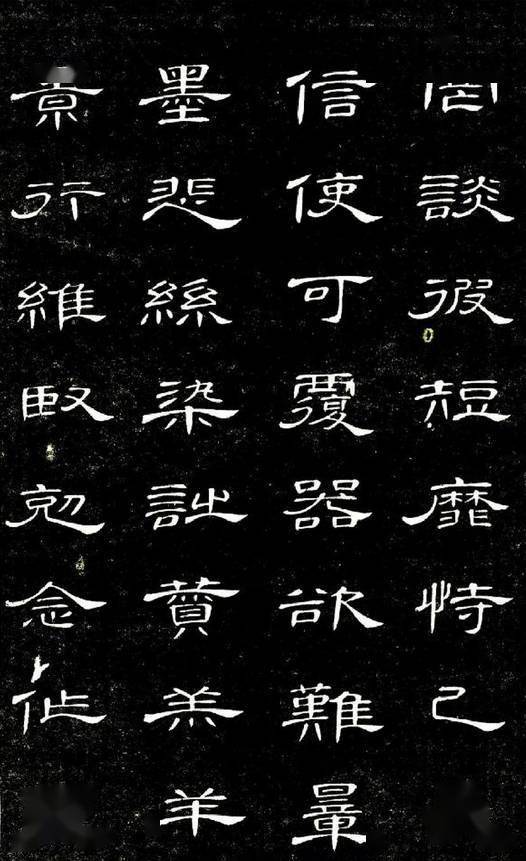 罔談彼短靡恃己
信使可覆器欲難量
墨悲絲染詩贊羔羊
景行維臤克念作